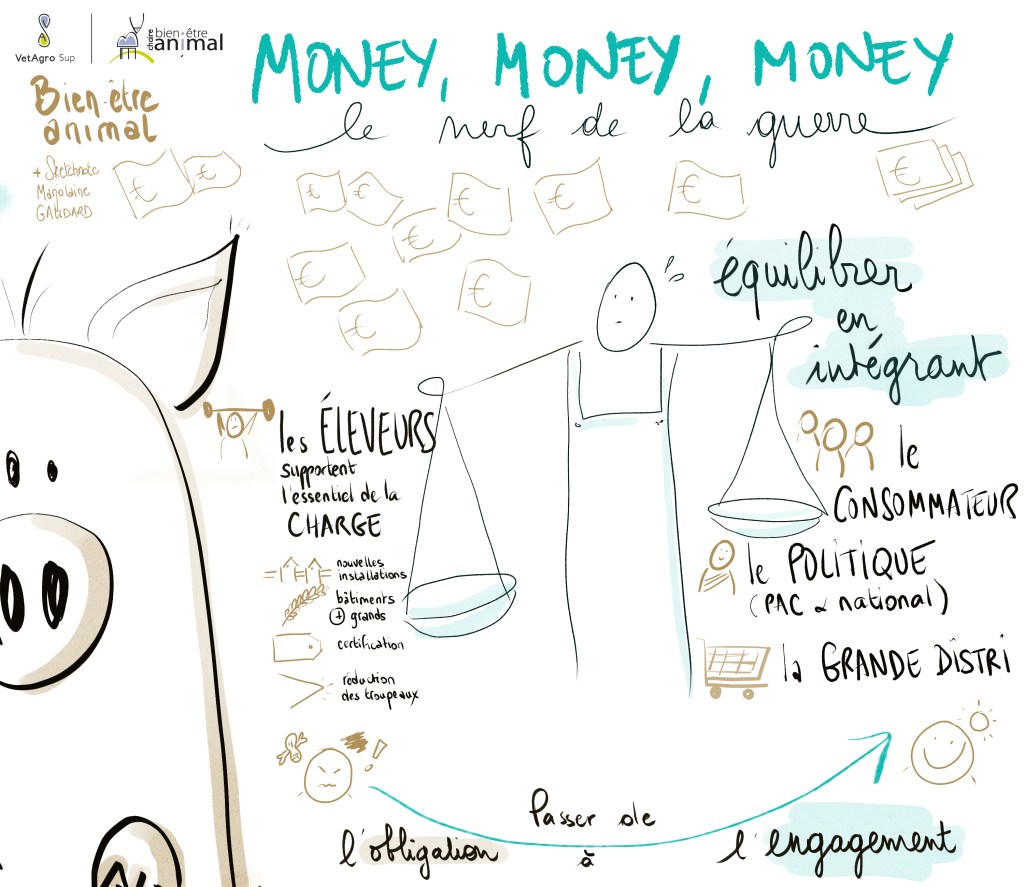 VetAgro Sup
chaire bien-être
animal
Bien-être
animal
+ Sketchnote
Marjolaine
GAUDARD
MONEY, MONEY, MONEY
le nerf de la guerre
€ € € € € € € €
€ € € €
équilibrer
en
intégrant
les ÉLEVEURS
supportent
l'essentiel de la
CHARGE
nouvelles
installations
bâtiments
+ grands
certification
réduction
des troupeaux
le
CONSOMMATEUR
le POLITIQUE
(PAC & national)
la GRANDE DISTRI
!
Passer de
l'obligation à l'engagement